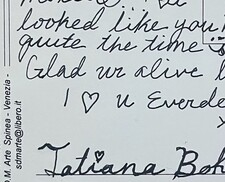 looked like you
quite the time
Glad ur alive
I ♡ u Everde
Tatiana Boh
D.M. Arte Spinea - Venezia -
sdmarte@libero.it